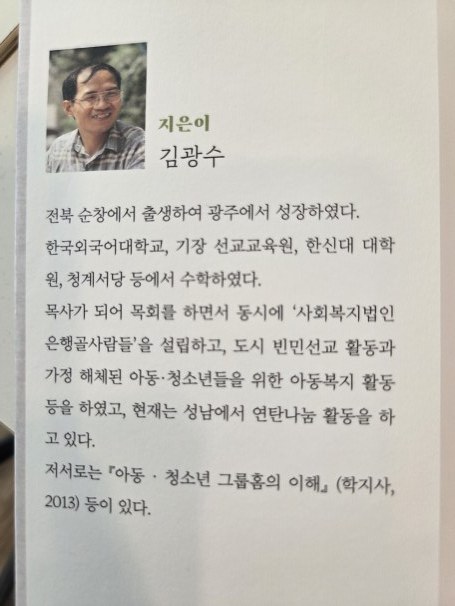 지은이
김광수
전북 순창에서 출생하여 광주에서 성장하였다.
한국외국어대학교, 기장 선교교육원, 한신대 대학
원, 청계서당 등에서 수학하였다.
목사가 되어 목회를 하면서 동시에 '사회복지법인
은행골사람들'을 설립하고, 도시 빈민선교 활동과
가정 해체된 아동·청소년들을 위한 아동복지 활동
등을 하였고, 현재는 성남에서 연탄나눔 활동을 하
고 있다.
저서로는 『아동 · 청소년 그룹홈의 이해』 (학지사,
2013) 등이 있다.